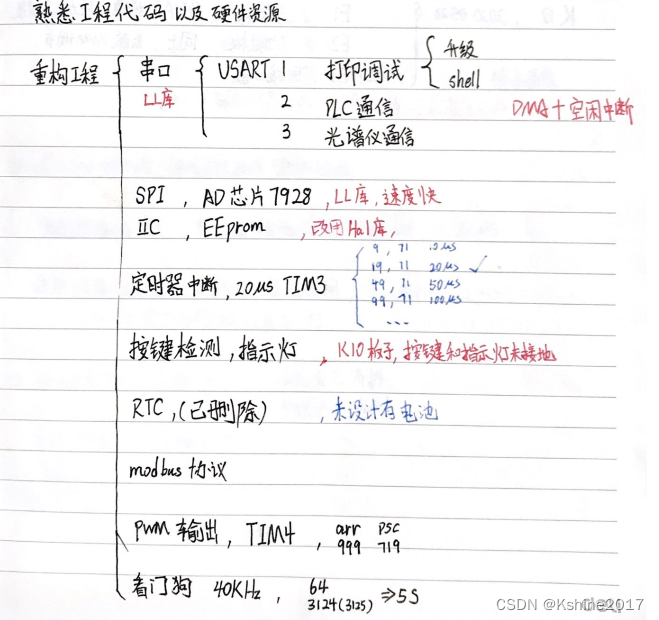 熟悉工程代码以及硬件资源
重构工程
串口 USART 1 打印调试 升级
shell
LL库 2 PLC通信 DMA+空闲中断
3 光谱仪通信
SPI , AD芯片7928 , LL库,速度快
IIC , EEprom , 改用Hal库,
9 , 71 10μs
19 , 71 20μs ✓
定时器中断, 20μs TIM3 49 , 71 50μs
99 , 71 100μs
...
按键检测 , 指示灯 , K10板子, 按键和指示灯未接地
RTC , (已删除) , 未设计有电池
modbus 协议
PWM 输出 , TIM4 , arr psc
999 719
看门狗 40KHz , 64
3124(3125) ⇒ 5S
CSDN @Kshine2017